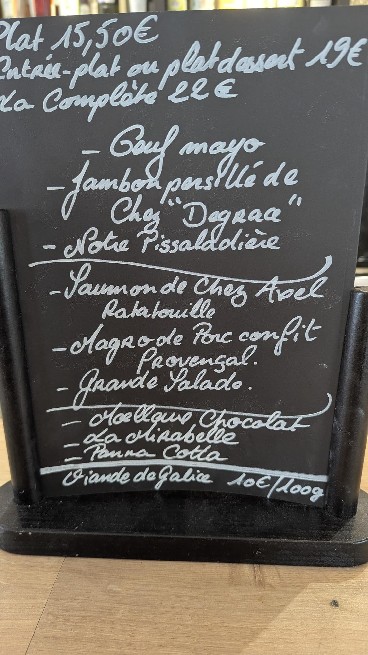 Plat 15,50€
Entrée-plat ou plat dessert 19€
La Complète 22€
- Oeuf mayo
- Jambon persillé de
Chez "Degrace"
- Notre Pissaladière
- Saumon de Chez Axel
Ratatouille
- Magro de Porc confit
Provençal.
- Grande Salade.
- Moelleux Chocolat
- La Mirabelle
- Panna Cotta
Viande de Galice 10€/100g